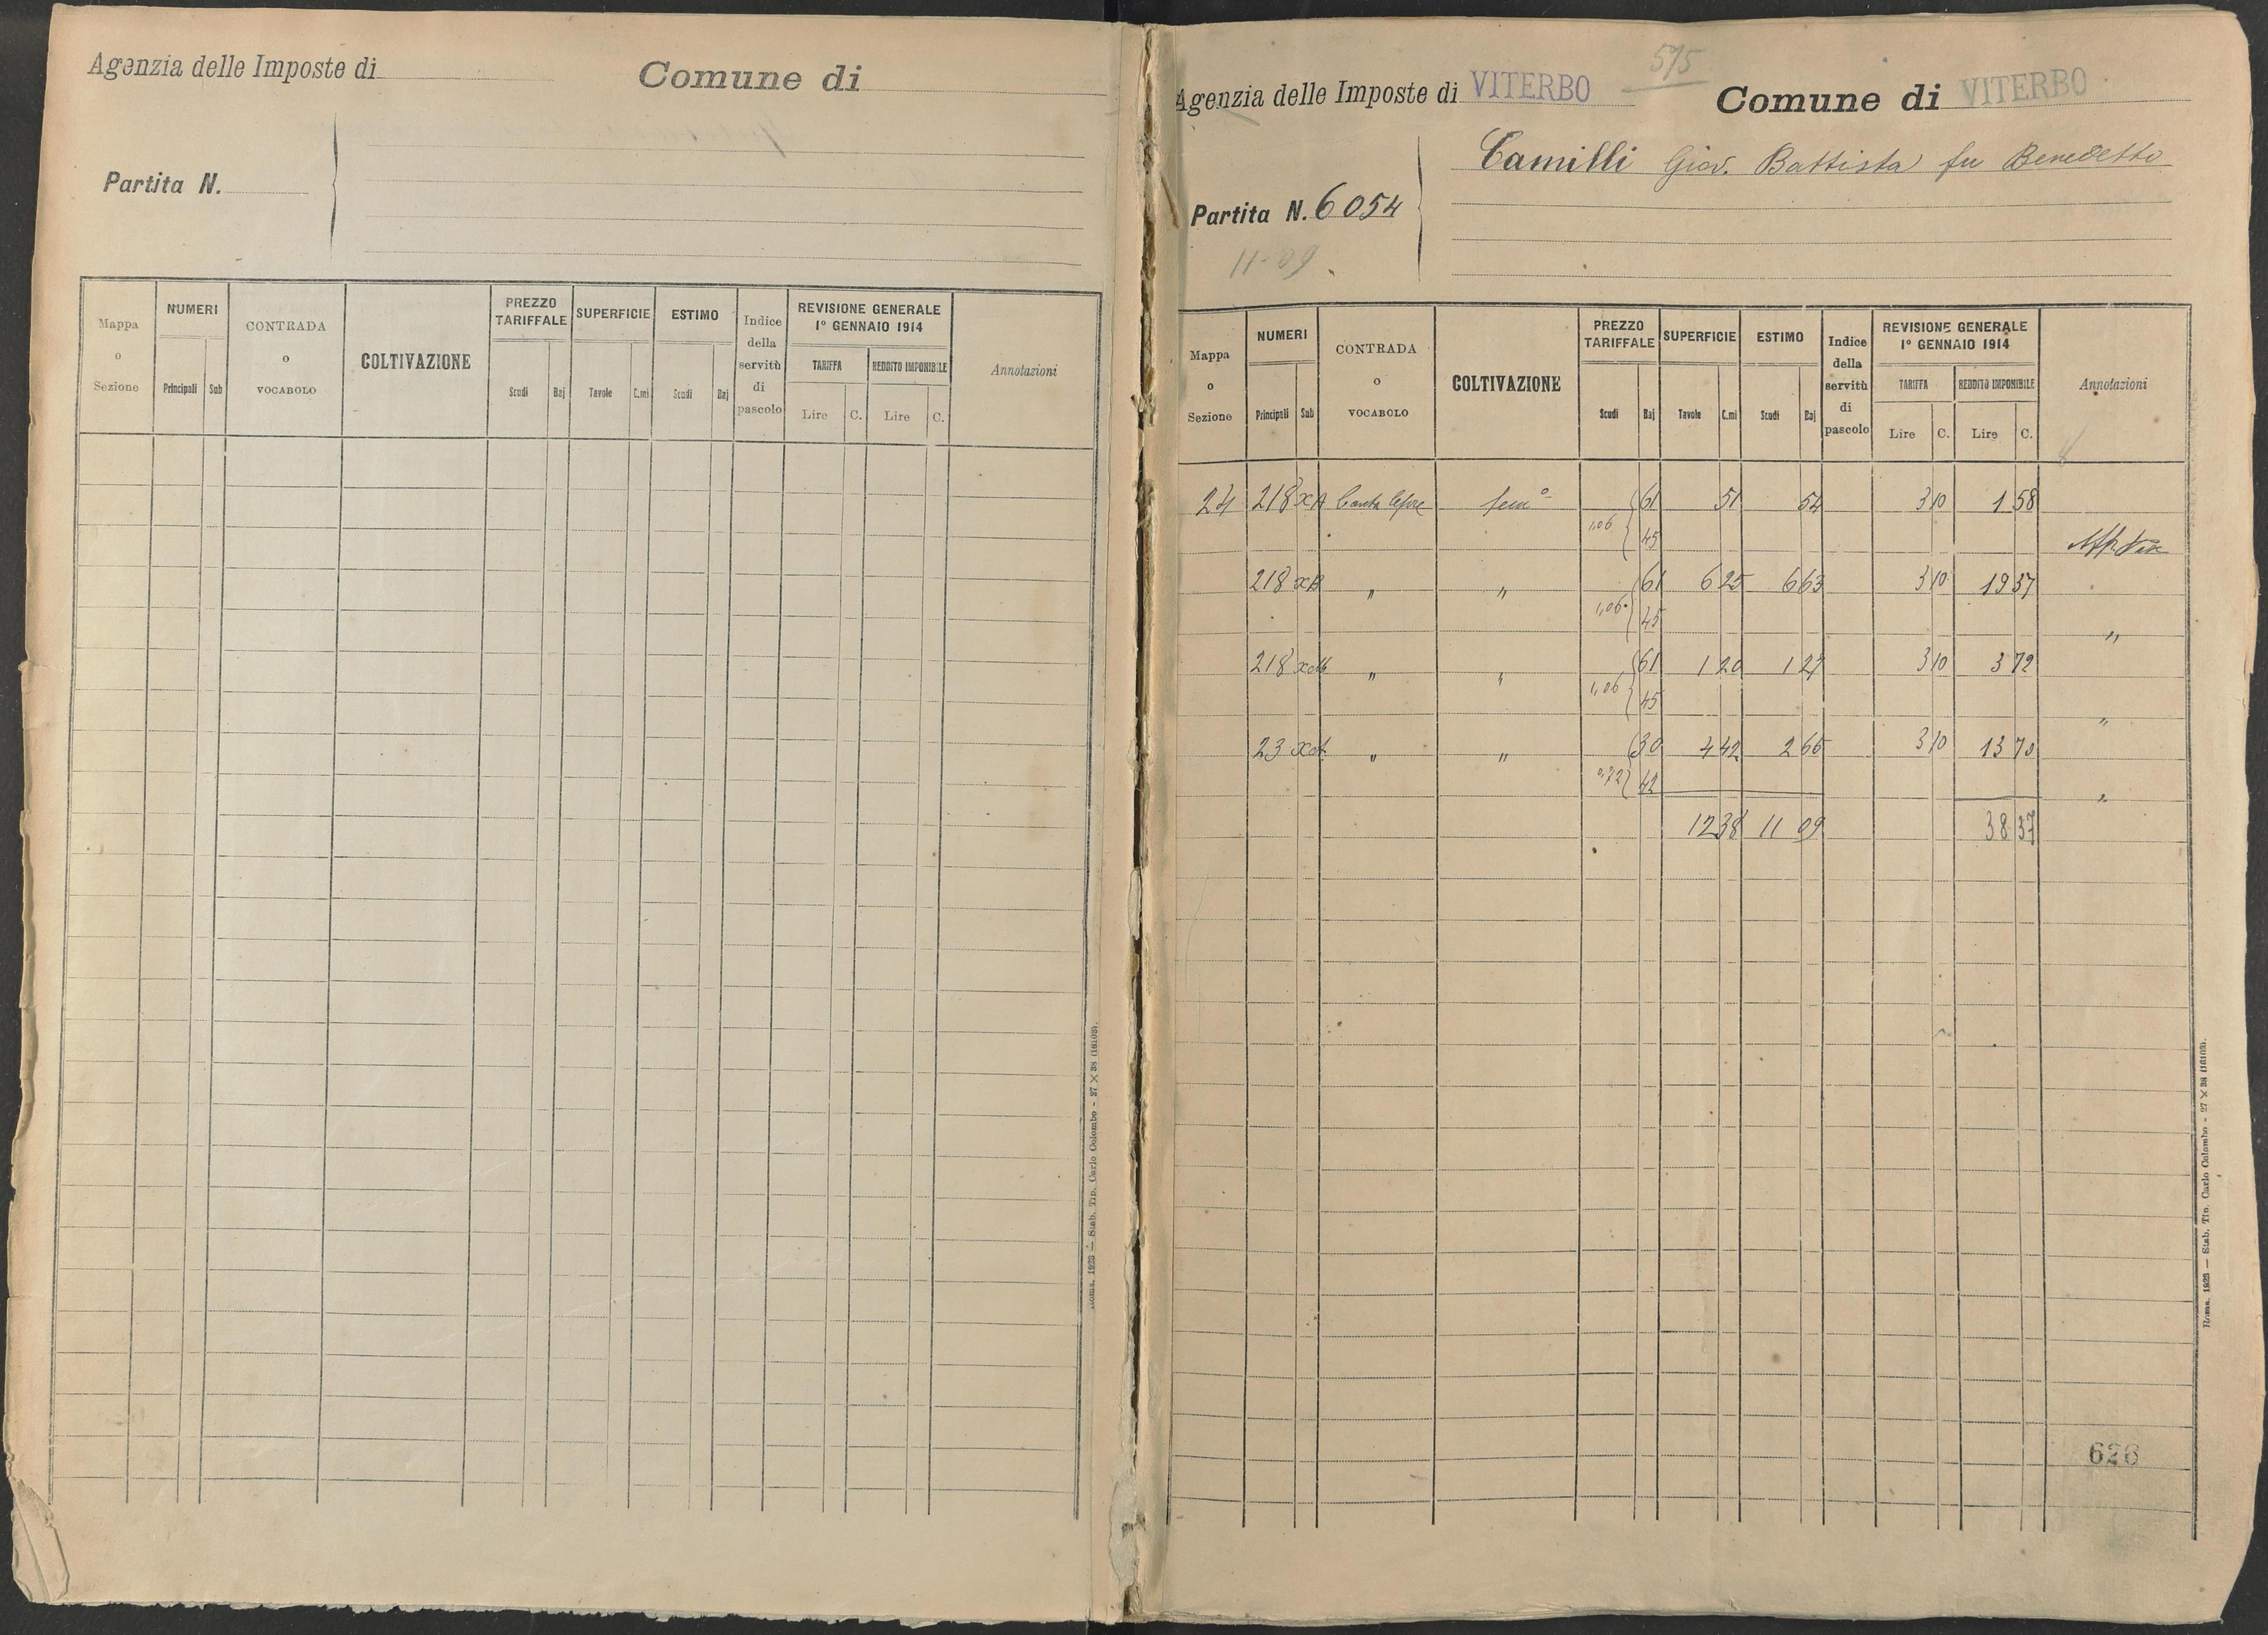 Agenzia delle Imposte di
Comune di
Partita N.
Mappa o Sezione
NUMERI
Principali Sub
CONTRADA o VOCABOLO
COLTIVAZIONE
PREZZO TARIFFALE
Scudi Baj
SUPERFICIE
Tavole C.mi
ESTIMO
Scudi Baj
Indice della servitù di pascolo
REVISIONE GENERALE
1º GENNAIO 1914
TARIFFA REDDITO IMPONIBILE
Lire C. Lire C.
Annotazioni
Roma, 1923 — Stab. Tip. Carlo Colombo - 27 X 38 (18103).
575
Agenzia delle Imposte di VITERBO
Comune di VITERBO
Camilli Giov. Battista fu Benedetto
Partita N. 6054
11-09
Mappa o Sezione
NUMERI
Principali Sub
CONTRADA o VOCABOLO
COLTIVAZIONE
PREZZO TARIFFALE
Scudi Baj
SUPERFICIE
Tavole C.mi
ESTIMO
Scudi Baj
Indice della servitù di pascolo
REVISIONE GENERALE
1º GENNAIO 1914
TARIFFA REDDITO IMPONIBILE
Lire C. Lire C.
Annotazioni
24 218 xA Canta lepre semº 61 51 54 3 10 1 58
1,06 45
218 xB " " 61 6 25 6 63 3 10 19 37
1,06 45
"
218 " " 61 1 20 1 27 3 10 3 72
1,06 45
"
23 " " 30 4 42 2 65 3 10 13 70
0,72 42
"
12 38 11 09 38 37
626
Roma, 1923 — Stab. Tip. Carlo Colombo - 27 X 38 (18103).